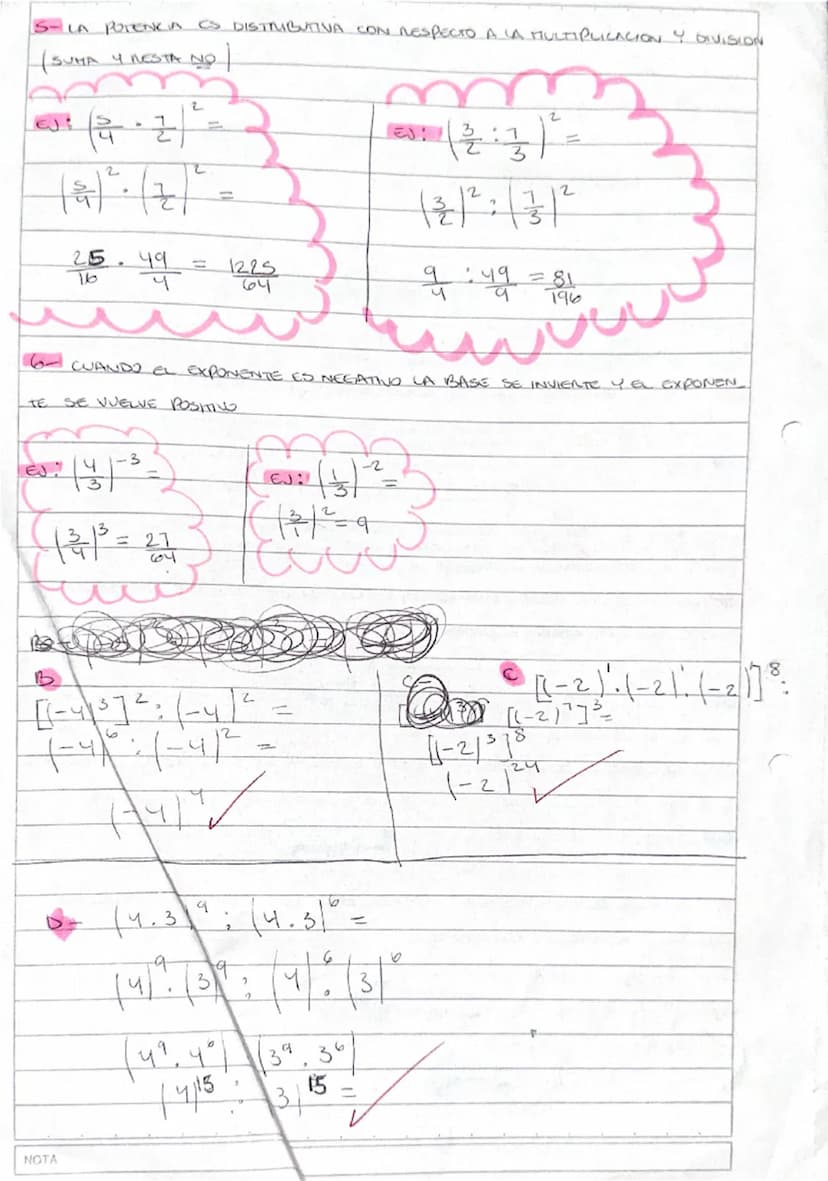 5- LA POTENCIA ES DISTRIBUTIVA CON RESPECTO A LA MULTIPLICACION Y DIVISION
(SUMA Y RESTA NO)
EJ: (5/4 · 7/2)² =
(5/4)² · (7/2)² =
25/16 · 49/4 = 1225/64
EJ: (3/2 : 7/3)² =
(3/2)² : (7/3)²
9/4 : 49/9 = 81/196
6- CUANDO EL EXPONENTE ES NEGATIVO LA BASE SE INVIERTE Y EL EXPONEN_
TE SE VUELVE POSITIVO
EJ: (4/3)⁻³ =
(3/4)³ = 27/64
EJ: (1/3)⁻² =
(3/1)² = 9
B
[(-4)³]² : (-4)² =
(-4)⁶ : (-4)² =
(-4)⁴
C [(-2)¹·(-2)¹·(-2)]⁸ :
[(-2)⁷]³ =
[(-2)³]⁸
(-2)²⁴
D- (4.3)⁹ : (4.3)⁶ =
(4)⁹·(3)⁹ : (4)⁶·(3)⁶
(4⁹.4⁶) : (3⁹.3⁶)
(4)¹⁵ : 3)¹⁵ =
NOTA